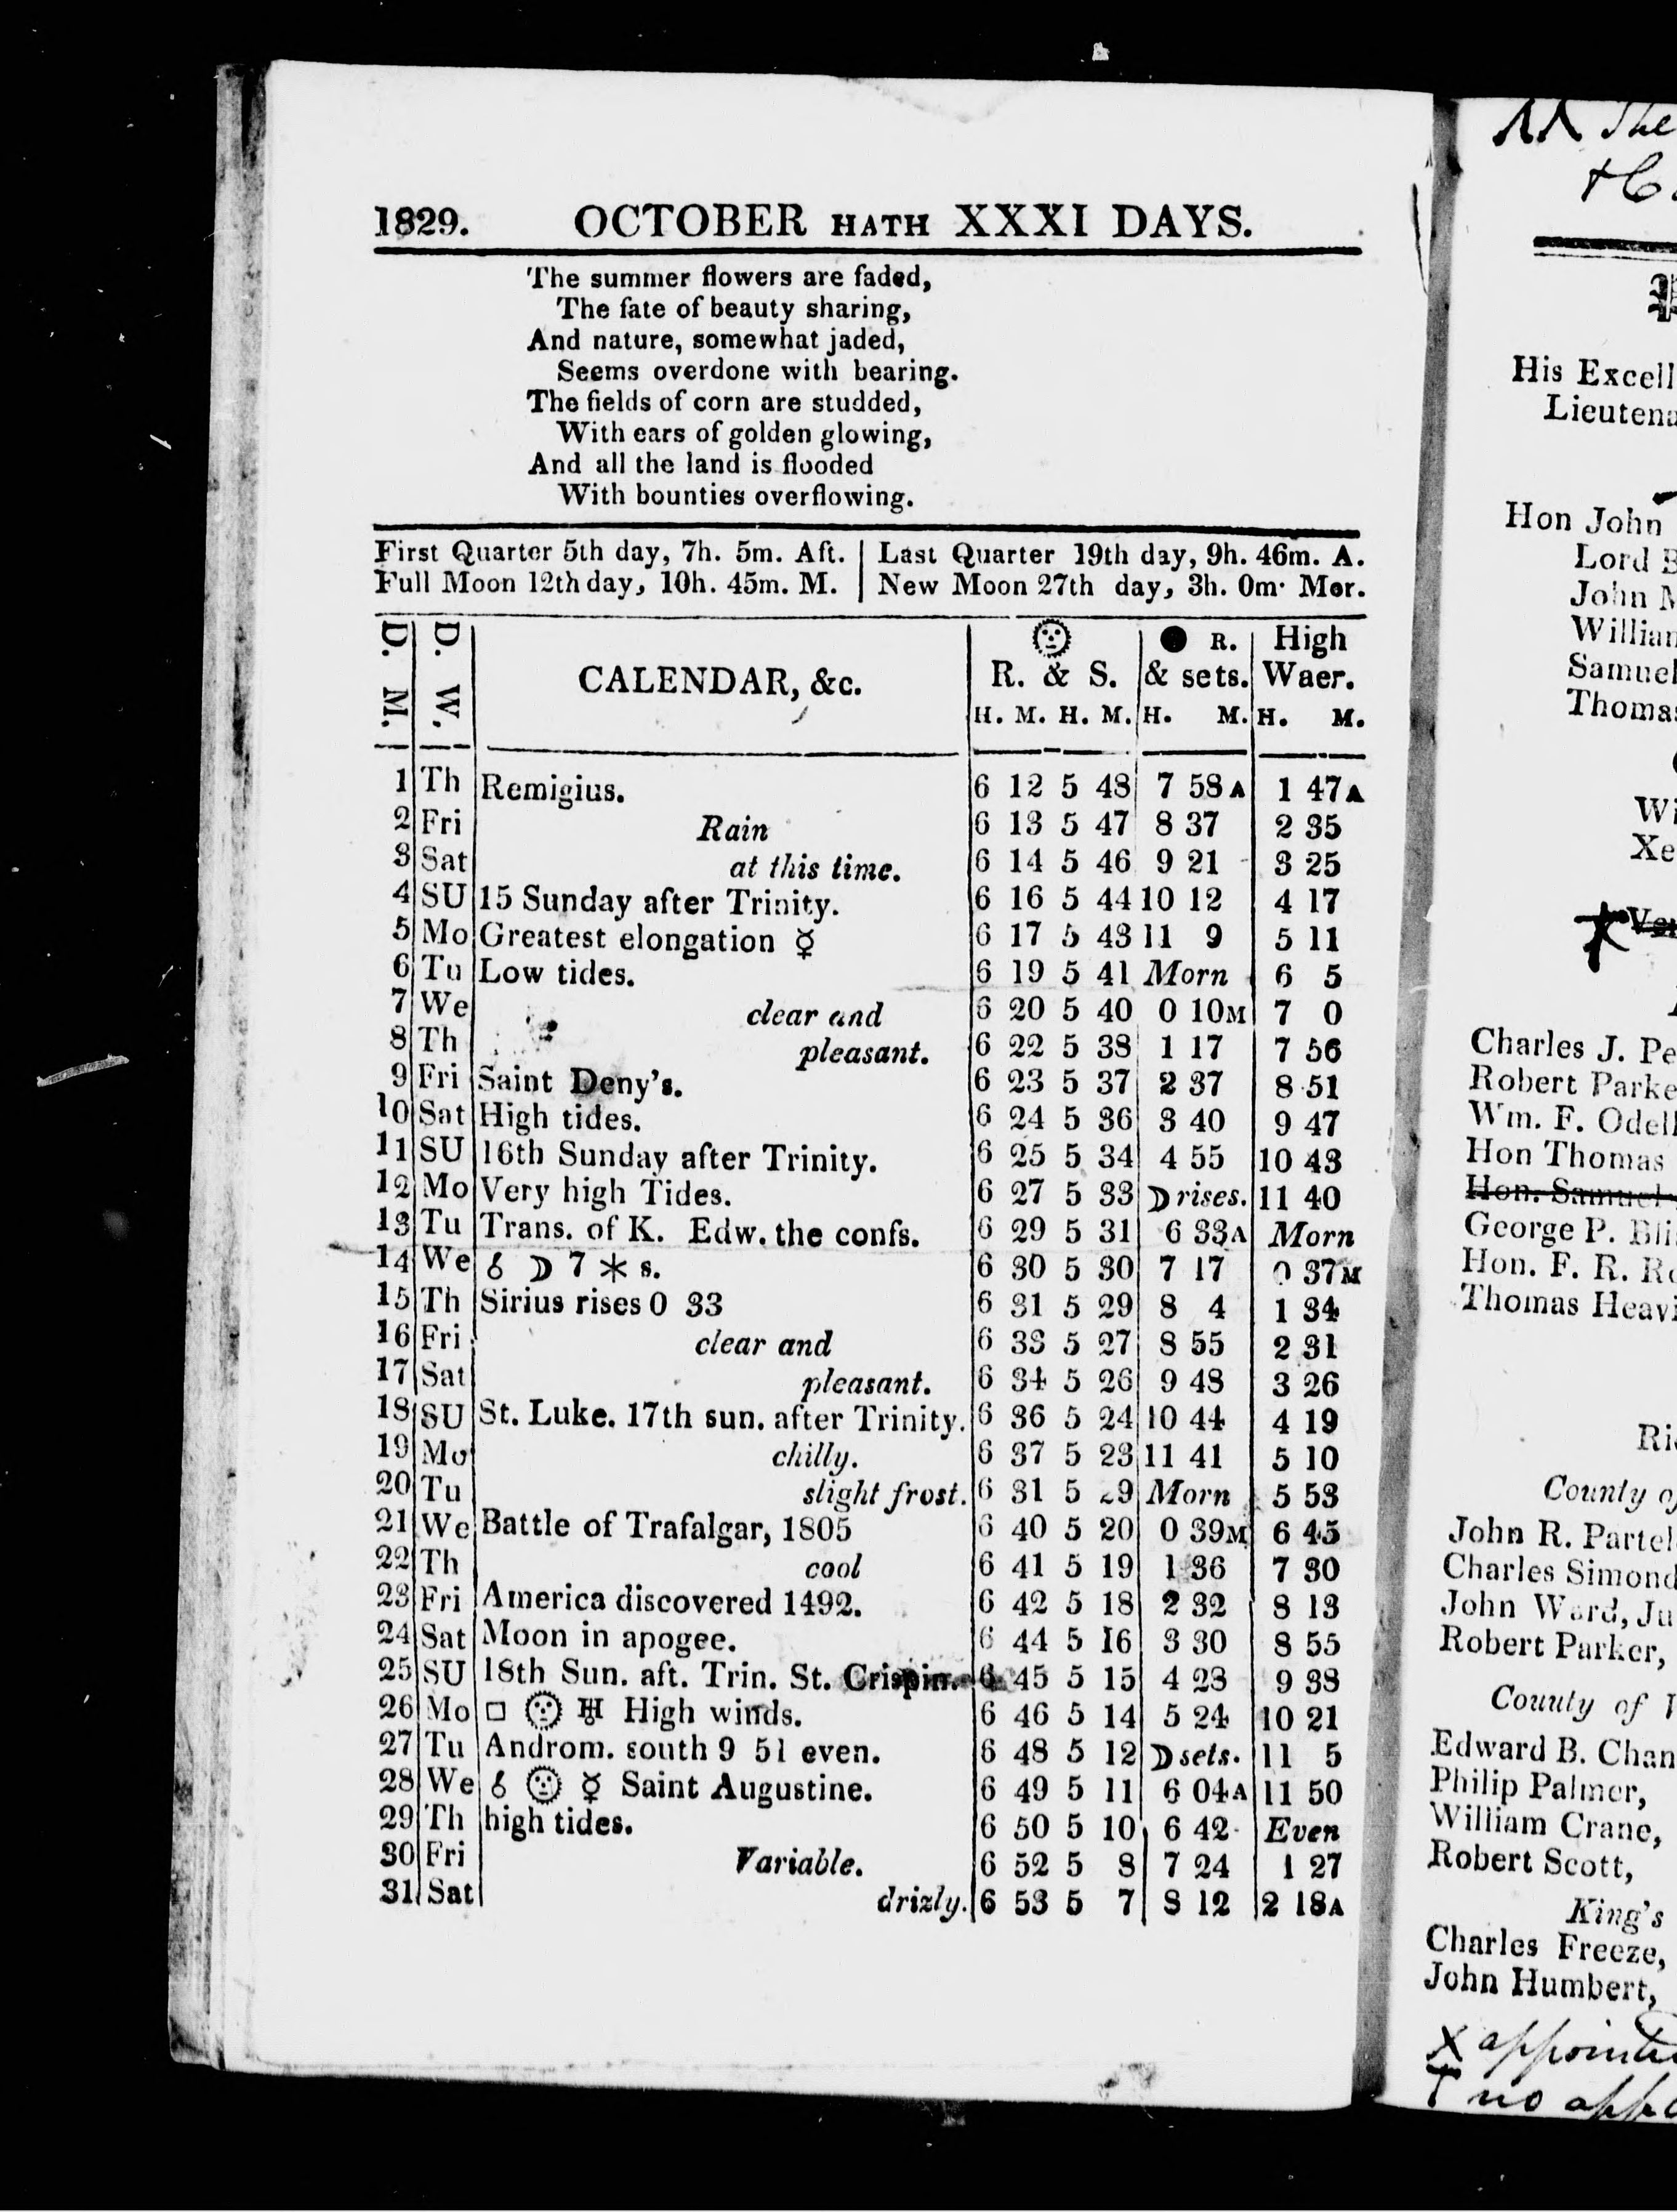 1829. OCTOBER HATH XXXI DAYS.
The summer flowers are faded,
The fate of beauty sharing,
And nature, somewhat jaded,
Seems overdone with bearing.
The fields of corn are studded,
With ears of golden glowing,
And all the land is flooded
With bounties overflowing.
First Quarter 5th day, 7h. 5m. Aft. | Last Quarter 19th day, 9h. 46m. A.
Full Moon 12th day, 10h. 45m. M. | New Moon 27th day, 3h. 0m· Mer.
D. M. D. W. CALENDAR, &c. R. & S. ● R. & sets. High Waer.
H. M. H. M. H. M. H. M.
1 Th Remigius. 6 12 5 48 7 58A 1 47A
2 Fri Rain 6 13 5 47 8 37 2 35
3 Sat at this time. 6 14 5 46 9 21 3 25
4 SU 15 Sunday after Trinity. 6 16 5 44 10 12 4 17
5 Mo Greatest elongation ☿ 6 17 5 43 11 9 5 11
6 Tu Low tides. 6 19 5 41 Morn 6 5
7 We clear and 6 20 5 40 0 10M 7 0
8 Th pleasant. 6 22 5 38 1 17 7 56
9 Fri Saint Deny's. 6 23 5 37 2 37 8 51
10 Sat High tides. 6 24 5 36 3 40 9 47
11 SU 16th Sunday after Trinity. 6 25 5 34 4 55 10 43
12 Mo Very high Tides. 6 27 5 33 ☽ rises. 11 40
13 Tu Trans. of K. Edw. the confs. 6 29 5 31 6 33A Morn
14 We ☌ ☽ 7 * s. 6 30 5 30 7 17 0 37M
15 Th Sirius rises 0 33 6 31 5 29 8 4 1 34
16 Fri clear and 6 33 5 27 8 55 2 31
17 Sat pleasant. 6 34 5 26 9 48 3 26
18 SU St. Luke. 17th sun. after Trinity. 6 36 5 24 10 44 4 19
19 Mo chilly. 6 37 5 23 11 41 5 10
20 Tu slight frost. 6 31 5 29 Morn 5 53
21 We Battle of Trafalgar, 1805 6 40 5 20 0 39M 6 45
22 Th cool 6 41 5 19 1 36 7 30
23 Fri America discovered 1492. 6 42 5 18 2 32 8 13
24 Sat Moon in apogee. 6 44 5 16 3 30 8 55
25 SU 18th Sun. aft. Trin. St. Crispin. 6 45 5 15 4 23 9 38
26 Mo □ ☉ ♅ High winds. 6 46 5 14 5 24 10 21
27 Tu Androm. south 9 51 even. 6 48 5 12 ☽ sets. 11 5
28 We ☌ ☉ ☿ Saint Augustine. 6 49 5 11 6 04A 11 50
29 Th high tides. 6 50 5 10 6 42 Even
30 Fri Variable. 6 52 5 8 7 24 1 27
31 Sat drizly. 6 53 5 7 8 12 2 18A
The
His Excell
Lieutena
Hon John
Lord B
John M
William
Samuel
Thomas
Wi
Xe
Charles J. Pe
Robert Parke
Wm. F. Odell
Hon Thomas
Hon. Samuel
George P. Bli
Hon. F. R. Ro
Thomas Heavi
Ri
County of
John R. Partel
Charles Simond
John Ward, Ju
Robert Parker,
County of
Edward B. Chan
Philip Palmer,
William Crane,
Robert Scott,
King's
Charles Freeze,
John Humbert,
X appointe
no appo